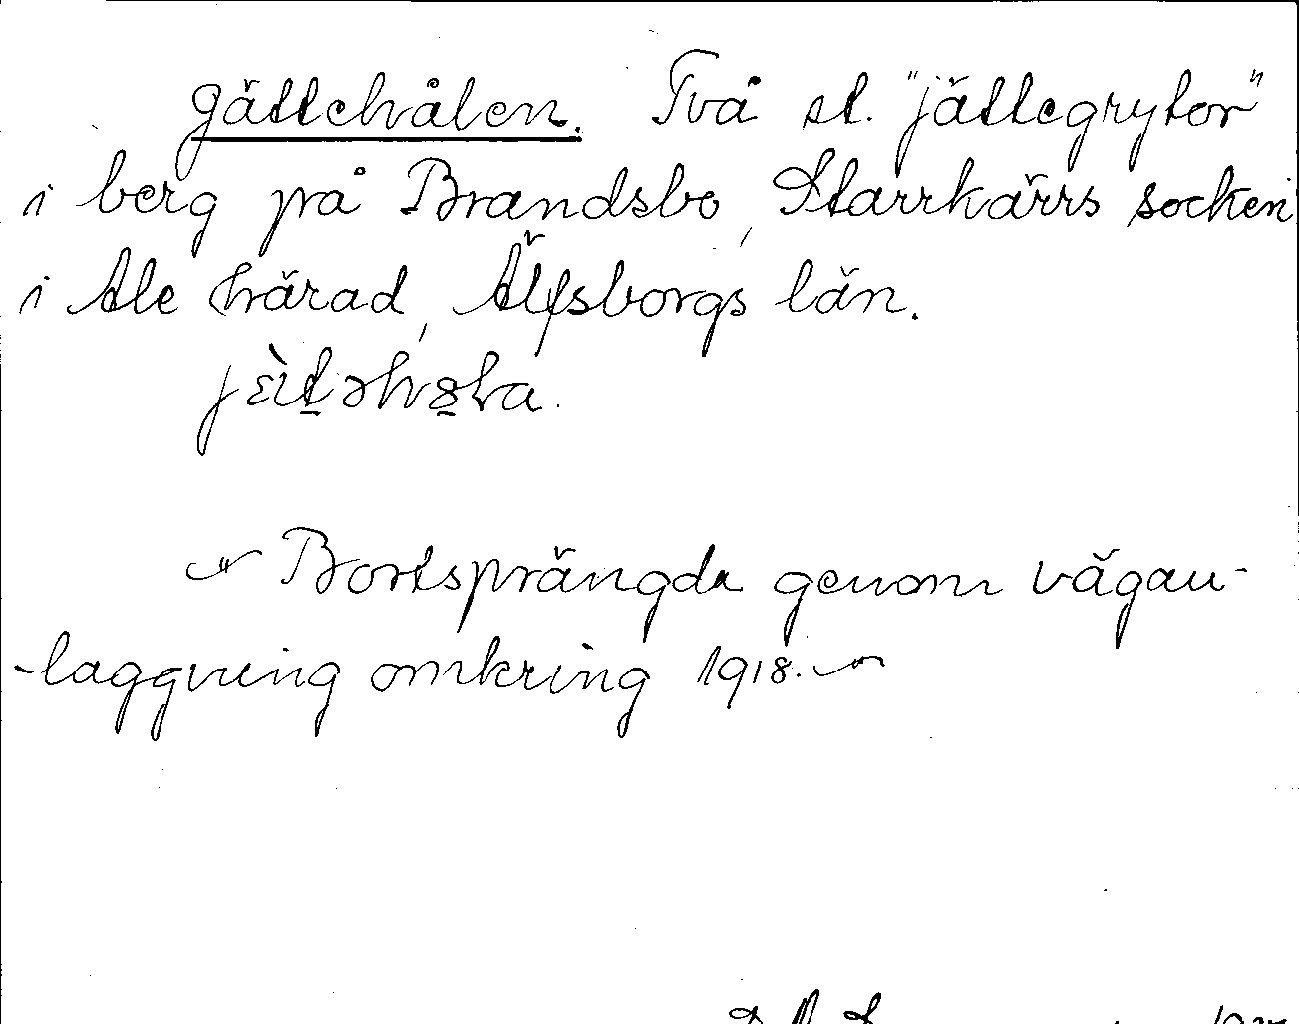 Jättehålen. Två st. "jättegrytor"
i berg på Brandsbo, Starrkärrs socken
i Ale härad, Älfsborgs län.
Bortsprängda genom vägan-
-läggning omkring 1918.